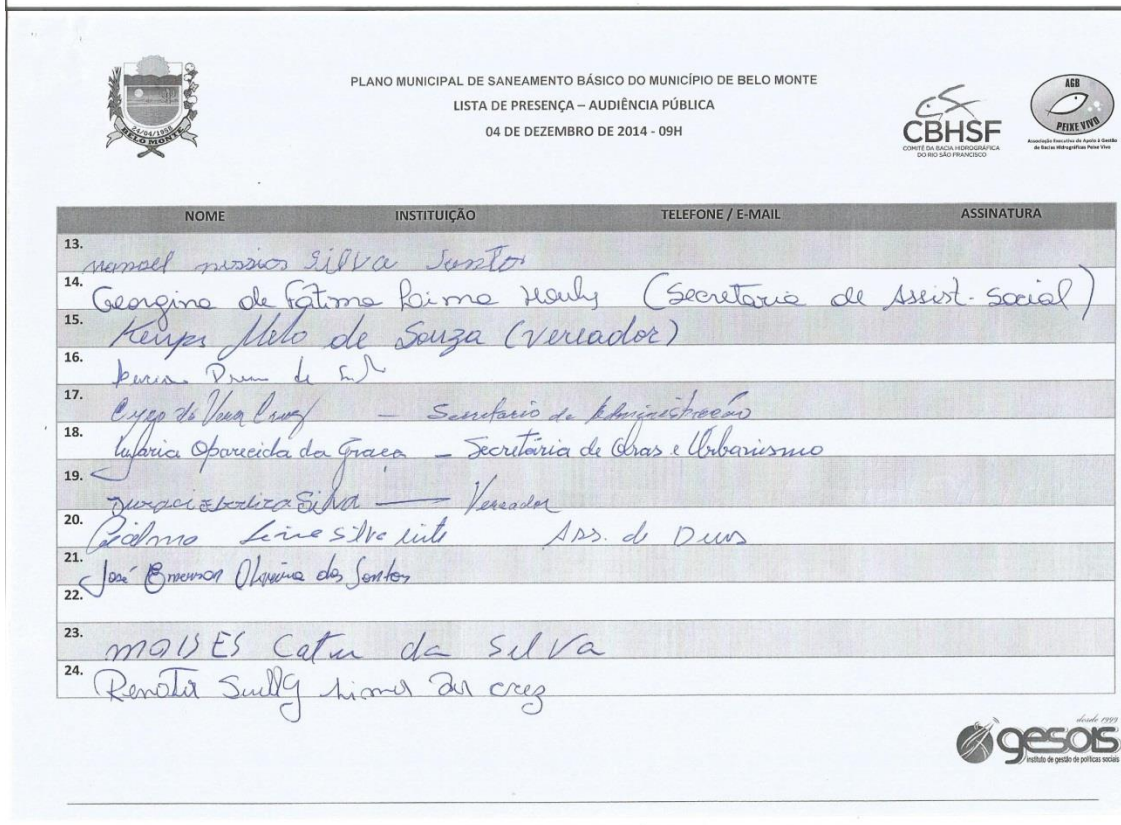 PLANO MUNICIPAL DE SANEAMENTO BÁSICO DO MUNICÍPIO DE BELO MONTE
LISTA DE PRESENÇA – AUDIÊNCIA PÚBLICA
04 DE DEZEMBRO DE 2014 - 09H
24/04/1958
BELO MONTE
CBHSF
COMITÊ DA BACIA HIDROGRÁFICA
DO RIO SÃO FRANCISCO
AGB
PEIXE VIVO
Associação Executiva de Apoio à Gestão
de Bacias Hidrográficas Peixe Vivo
NOME INSTITUIÇÃO TELEFONE / E-MAIL ASSINATURA
13. manoel missios Silva Santos
14. Georgina de Fátima (Secretaria de Assist. Social)
15. Melo de Souza (Vereador)
16. de
17. da Vera Cruz – Secretario de Administração
18. Maria Aparecida da Graça – Secretária de Obras e Urbanismo
19. Silva — Vereador
20. Silva Ass. de Deus
21. José Emerson Oliveira dos Santos
22.
23. MOISES da Silva
24. Renata
desde 1999
gesois
instituto de gestão de políticas sociais